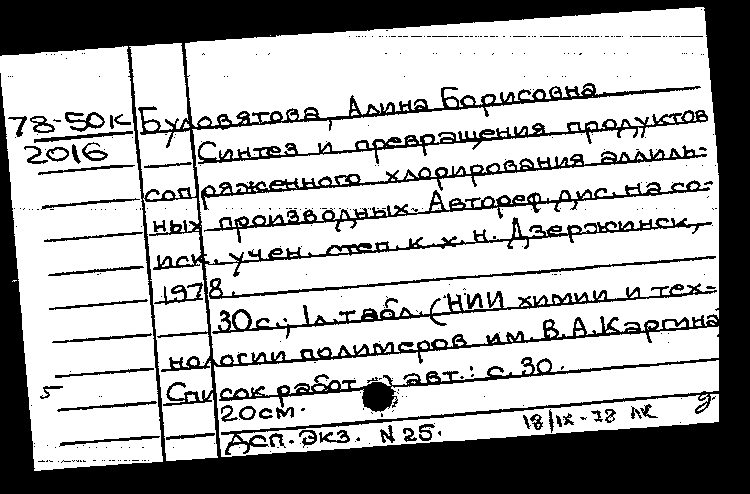 78-50К Будовятова, Алина Борисовна.
2016 Синтез и превращения продуктов
сопряженного хлорирования аллиль=
ных производных. Автореф. дис. на со=
иск. учен. степ. к. х. н. Дзержинск,
1978.
30с.; 1л.табл. (НИИ химии и тех=
нологии полимеров им. В.А.Каргина
5 Список работ авт.: с.30.
20см.
Дсп. Экз. N 25. 18/IX-78